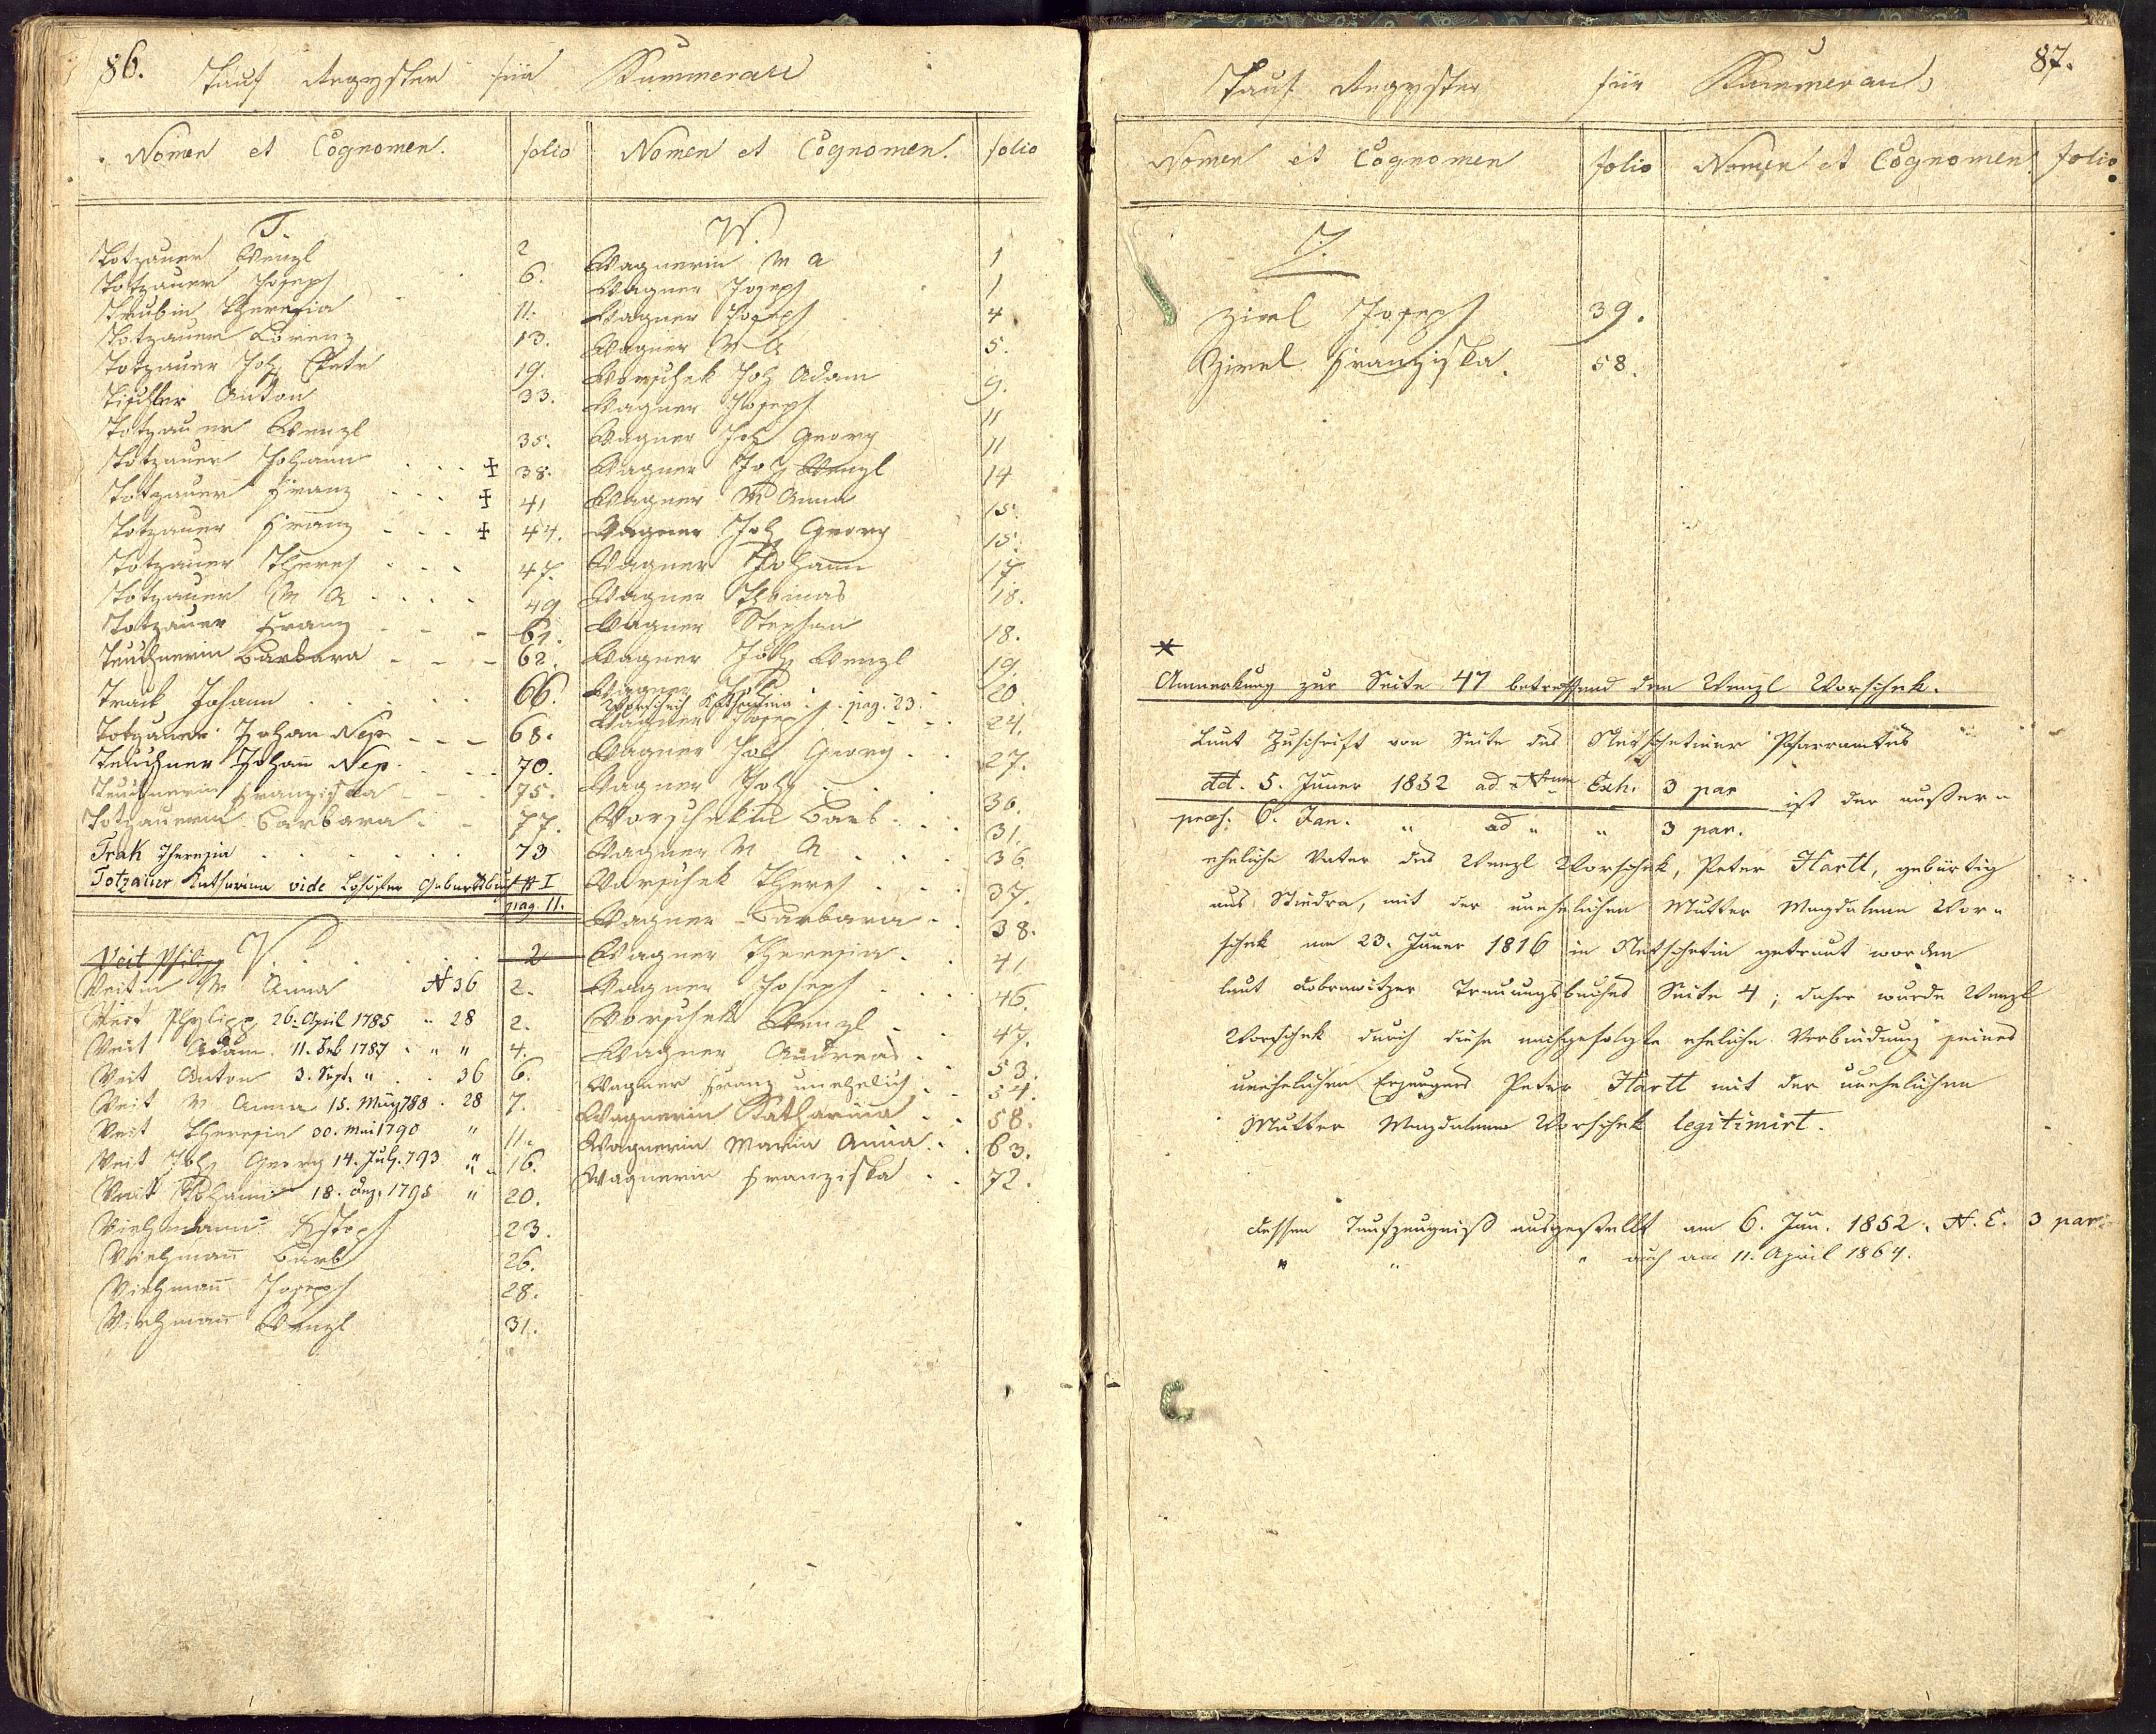 86.
Tauf Regyster für Kummerau
Nomen et Cognomen. folio
T.
Totzauer Wenzl 2
Totzauer Joseph 6.
Theresia 11.
Totzauer Lorenz 13.
Totzauer Joh. 19.
Tischler Anton 33.
Totzauer Wenzl 35.
Totzauer Johann ... ‡ 38.
Totzauer Franz ... ‡ 41
Totzauer Franz ... ‡ 44.
Totzauer Theres ... 47.
Totzauer M A .... 49
Totzauer Franz - - - 61.
Teuchnerin Barbara - - - 62.
Track Johann ..... 66.
Totzauer Johan Nep - - - 68.
Teuchner Johan Nep. - - - 70.
Teuchnerin Franziska - - - 75.
Totzauerin Barbara - - 77.
Trak Theresia ...... 73
Totzauer Katharina vide Lohöster Geburtsbuch # I
pag. 11.
V.
Veit Philipp ..... 2
Veitin M Anna N 36 2.
Veit Phylipp 26. April 1785 " 28 2.
Veit Adam. 11. Feb 1787 " " 4.
Veit Anton 3. Sept. " .. 36 6.
Veit M Anna 15. May 788 . 28 7.
Veit Theresia 30. Mai 1790 " 11.
Veit Joh Georg 14. July. 793 " 16.
Veit Johann 18. Dez. 1795 " 20.
Viehmann 23.
Viehmann Barb 26.
Viehmann Joseph 28.
Viehmann Wenzl 31.
Nomen et Cognomen. folio
W.
Wagnerin M A 1
Wagner Joseph 1
Wagner Joseph 4
Wagner M A 5.
Worschek Joh Adam 9.
Wagner Joseph 11
Wagner Joh Georg 11
Wagner Joh Wenzl 14
Wagner M Anna 15.
Wagner Joh Georg 15.
Wagner Johann 17
Wagner Thomas 18.
Wagner Stephan 18.
Wagner Joh Wenzl 19.
Wagner Joh 20.
Worschech Katharina . . pag. 23.
Wagner Joseph - - - 24.
Wagner Joh Georg . . 27.
Wagner Joh . . . 30.
Worschekin Barb. . . 31.
Wagner M A . . . 36
Worschek Theres . . . 37.
Wagner Barbara . . 38.
Wagner Theresia . . 41
Wagner Joseph . . . 46.
Worschek Wenzl . . 47.
Wagner Andreas . . 53.
Wagner Franz unehelich . - 54.
Wagnerin Katharina . . 58.
Wagnerin Maria Anna . . 63.
Wagnerin Franziska . . 72.
87.
Tauf Regyster für Kummerau
Nomen et Cognomen folio Nomen et Cognomen folio
Z.
Zirel Joseph 39.
Zirel Franziska. 58.
*
Anmerkung zur Seite 47 betreffend den Wenzl Worschek.
Laut Zuschrift von Seite des Netschetiner Pfarramtes
dd. 5. Jäner 1852 ad Nrum Exh. 3 par ist der außer=
praes. 6. Jan. " ad " " 3 par.
eheliche Vater des Wenzl Worschek, Peter Hartl, gebürtig
aus Stiedra, mit der unehelichen Mutter Magdalena Wor=
schek am 23. Jäner 1816 in Netschetin getraut worden
laut Dobrawitzer Trauungsbuches Seite 4; daher wurde Wenzl
Worschek durch diese nachgefolgte eheliche Verbindung seines
unehelichen Erzeugers Peter Hartl mit der unehelichen
Mutter Magdalena Worschek legitimirt.
Dessen Taufzeugniß ausgestellt am 6. Jän. 1852. N. E. 3 par
" " " auch am 11. April 1864.